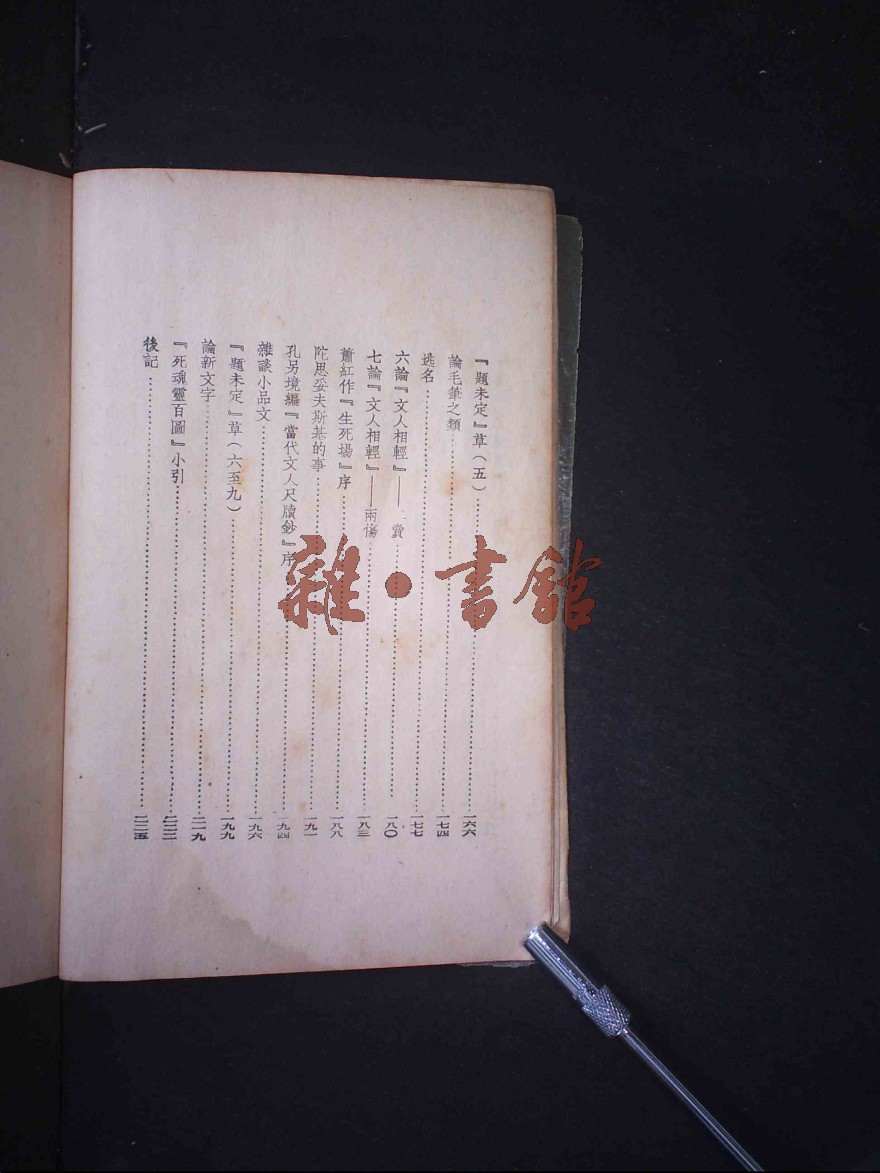 『題未定』草（五）……一六六
論毛筆之類……一七四
逃名……一七七
六論『文人相輕』——二賣……一八〇
七論『文人相輕』——兩傷……一八三
蕭紅作『生死場』序……一八八
陀思妥夫斯基的事……一九一
孔另境編『當代文人尺牘鈔』序……一九四
雜談小品文……一九六
『題未定』草（六至九）……一九九
論新文字……二一九
『死魂靈百圖』小引……二二二
後記……二二五
雜·書館